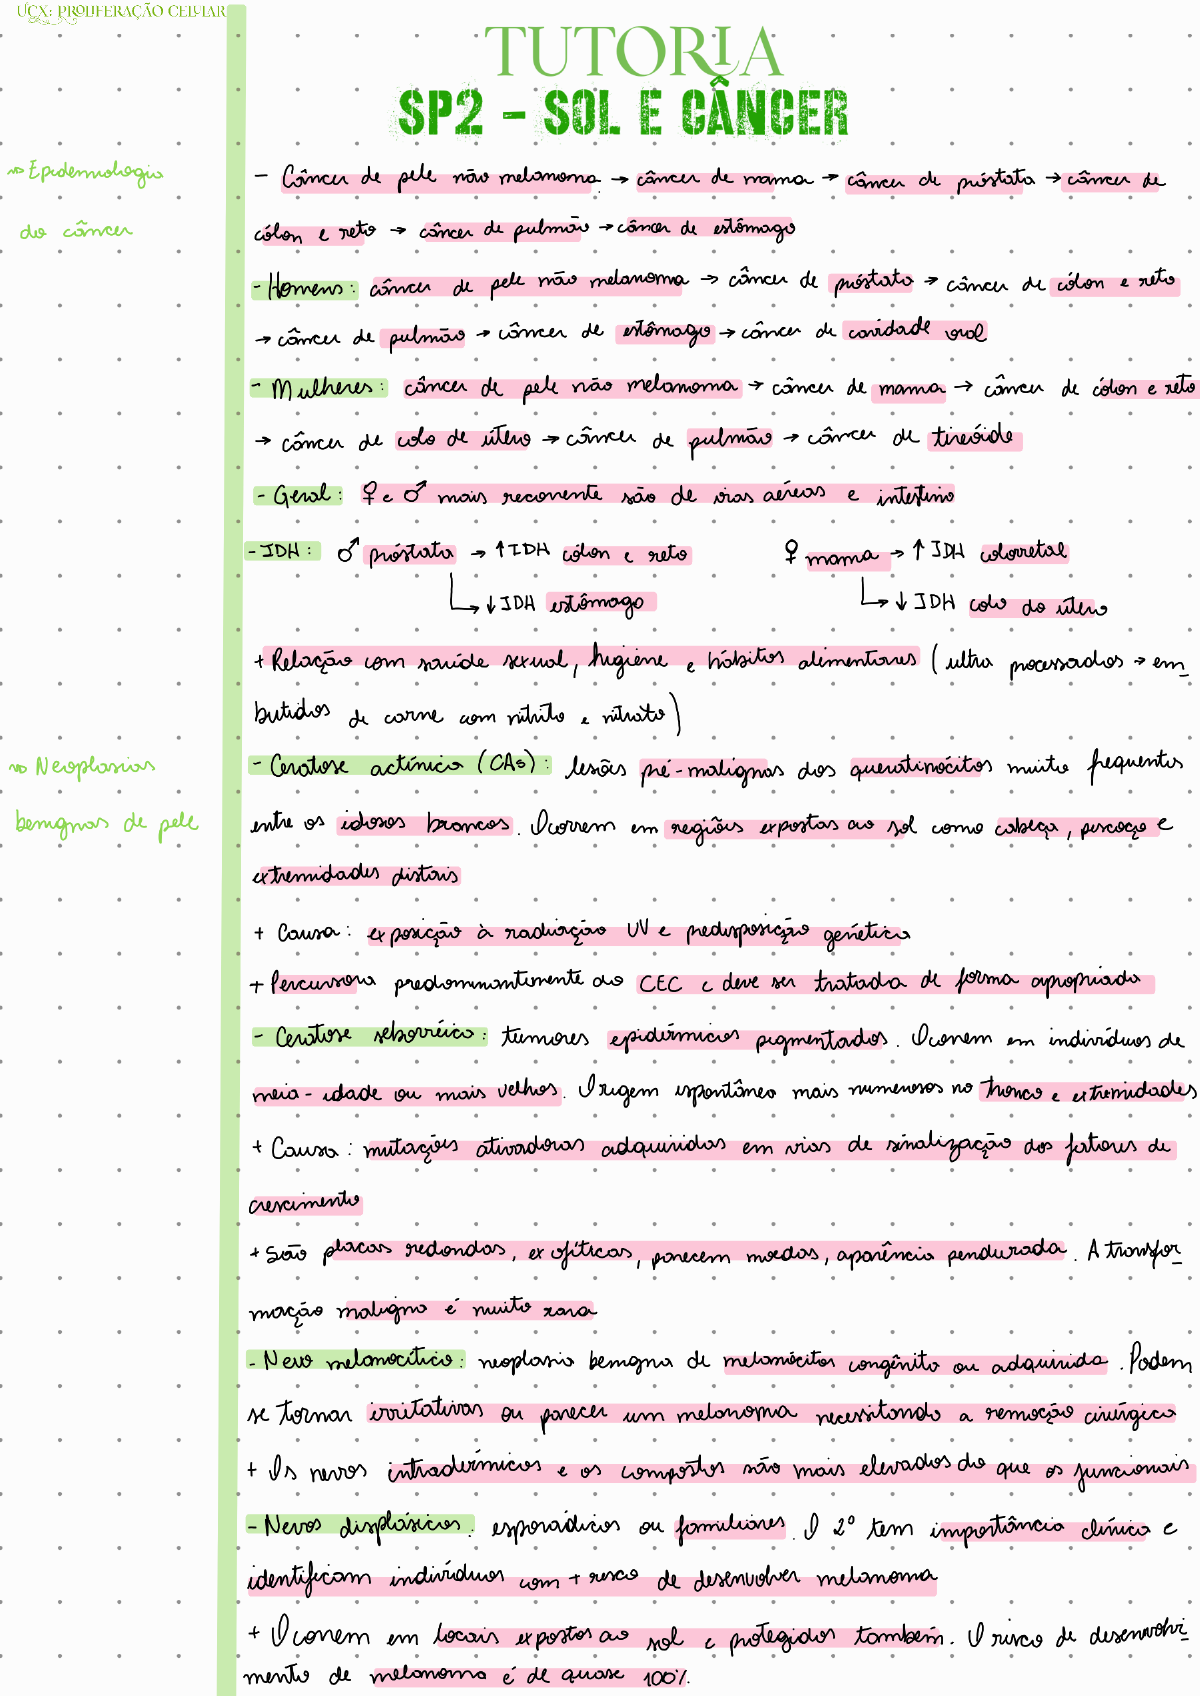 UCX: PROLIFERAÇÃO CELULAR
TUTORIA
SP2 - SOL E CÂNCER
Epidemiologia
do câncer
- Câncer de pele não melanoma → câncer de mama → câncer de próstata → câncer de
cólon e reto → câncer de pulmão → câncer de estômago
- Homens: câncer de pele não melanoma → câncer de próstata → câncer de cólon e reto
→ câncer de pulmão → câncer de estômago → câncer de cavidade oral
- Mulheres: câncer de pele não melanoma → câncer de mama → câncer de cólon e reto
→ câncer de colo de útero → câncer de pulmão → câncer de tireóide
- Geral: ♀ e ♂ mais recorrente são de vias aéreas e intestino
- IDH: ♂ próstata → ↑IDH cólon e reto ♀ mama → ↑ IDH colorretal
↓IDH estômago ↓ IDH colo do útero
+ Relação com saúde sexual, higiene e hábitos alimentares (ultra processados → em_
butidos de carne com nitrito e nitrato)
Neoplasias
benignas de pele
- Ceratose actínica (CAs): lesões pré-malignas dos queratinócitos muito frequentes
entre os idosos brancos. Ocorrem em regiões expostas ao sol como cabeça, pescoço e
extremidades distais
+ Causa: exposição à radiação UV e predisposição genética
+ Percursora predominantimente do CEC e deve ser tratada de forma apropriada
- Ceratose seborréica: tumores epidérmicos pigmentados. Ocorrem em indivíduos de
meia-idade ou mais velhos. Origem espontânea mais numerosos no tronco e extremidades
+ Causa: mutações ativadoras adquiridas em vias de sinalização dos fatores de
crescimento
+ São placas redondas, exofíticas, parecem moedas, aparência pendurada. A transfor_
mação maligna é muito rara
- Nevo melanocítico: neoplasia benigna de melanócitos congênita ou adquirida. Podem
se tornar irritativas ou parecer um melanoma necessitando a remoção cirúrgica
+ Os nevos intradérmicos e os compostos são mais elevados do que os juncionais
- Nevos displásicos: esporádicos ou familiares. O 2º tem importância clínica e
identificam indivíduos com + risco de desenvolver melanoma
+ Ocorrem em locais expostos ao sol e protegidos também. O risco de desenvolvi_
mento de melanoma é de quase 100%.